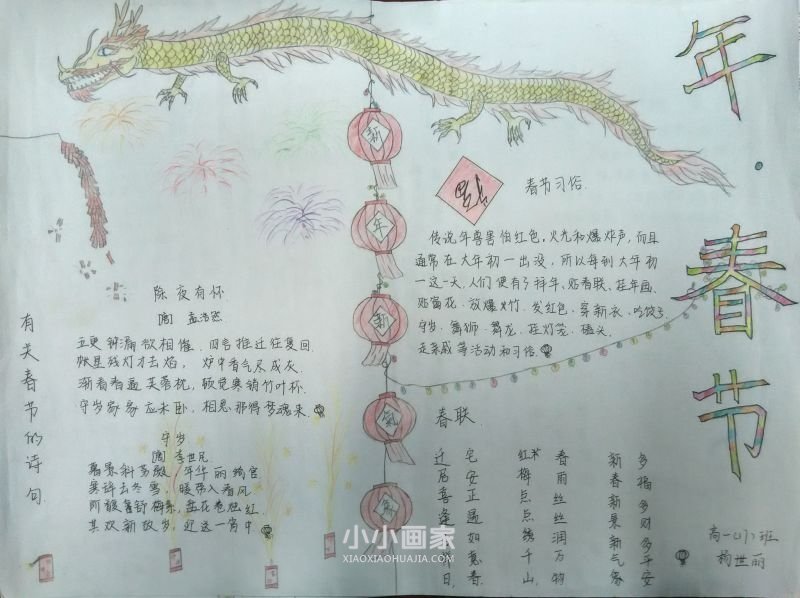 年·春节
新
年
新
氣
有关春节的诗句
除夜有怀
孟浩然
五更钟漏欲相催,四气推迁往复回
帐里残灯才去焰,炉中香气尽成灰
渐看春逼芙蓉枕,顿觉寒销竹叶杯
守岁家家应未卧,相思那得梦魂来
守岁
李世民
年华丽绮宫
寒辞去冬雪,暖带入春风
共欢新故岁,迎送一宵中
春节习俗
传说年兽害怕红色,火光和爆炸声,而且
通常在大年初一出没,所以每到大年初
一这一天,人们便有了拜年、贴春联、挂年画、
贴窗花、放爆竹、发红包、穿新衣、吃饺子、
守岁、舞狮、舞龙、挂灯笼、磕头、
走亲戚等活动和习俗
春联
迁居喜逢
宅安正遇如意春
红梅点点绣千山
春雨丝丝润万物
新春新景新气象
多福多财多平安
高一(1)班
杨世丽
小小画家
XIAOXIAOHUAJIA.COM